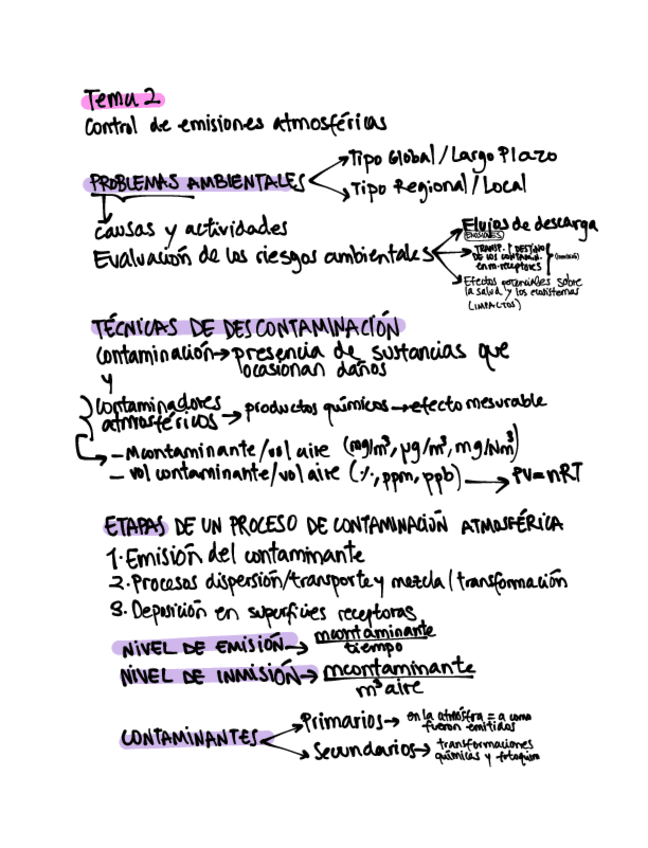 Tema 2
Control de emisiones atmosféricas
PROBLEMAS AMBIENTALES
Tipo Global / Largo Plazo
Tipo Regional / Local
causas y actividades
Evaluación de los riesgos ambientales
Flujos de descarga
(EMISIONES)
TRANSP. Y DESTINO
DE LOS CONTAMIN.
en m. receptores
Efectos potenciales sobre
la salud y los ecosistemas
(IMPACTOS)
TÉCNICAS DE DESCONTAMINACIÓN
Contaminación → presencia de sustancias que
ocasionan daños
y
Contaminadores
atmosféricos → productos químicos → efecto mesurable
- mcontaminante/vol aire (mg/m³, µg/m³, mg/Nm³)
- vol contaminante/vol aire (%, ppm, ppb) → PV=nRT
ETAPAS DE UN PROCESO DE CONTAMINACIÓN ATMOSFÉRICA
1. Emisión del contaminante
2. Procesos dispersión/transporte y mezcla / transformación
3. Deposición en superficies receptoras
NIVEL DE EMISIÓN → mcontaminante
tiempo
NIVEL DE INMISIÓN → mcontaminante
m³ aire
CONTAMINANTES
Primarios → en la atmósfra = a como
fueron emitidos
Secundarios → transformaciones
químicas y fotoquím